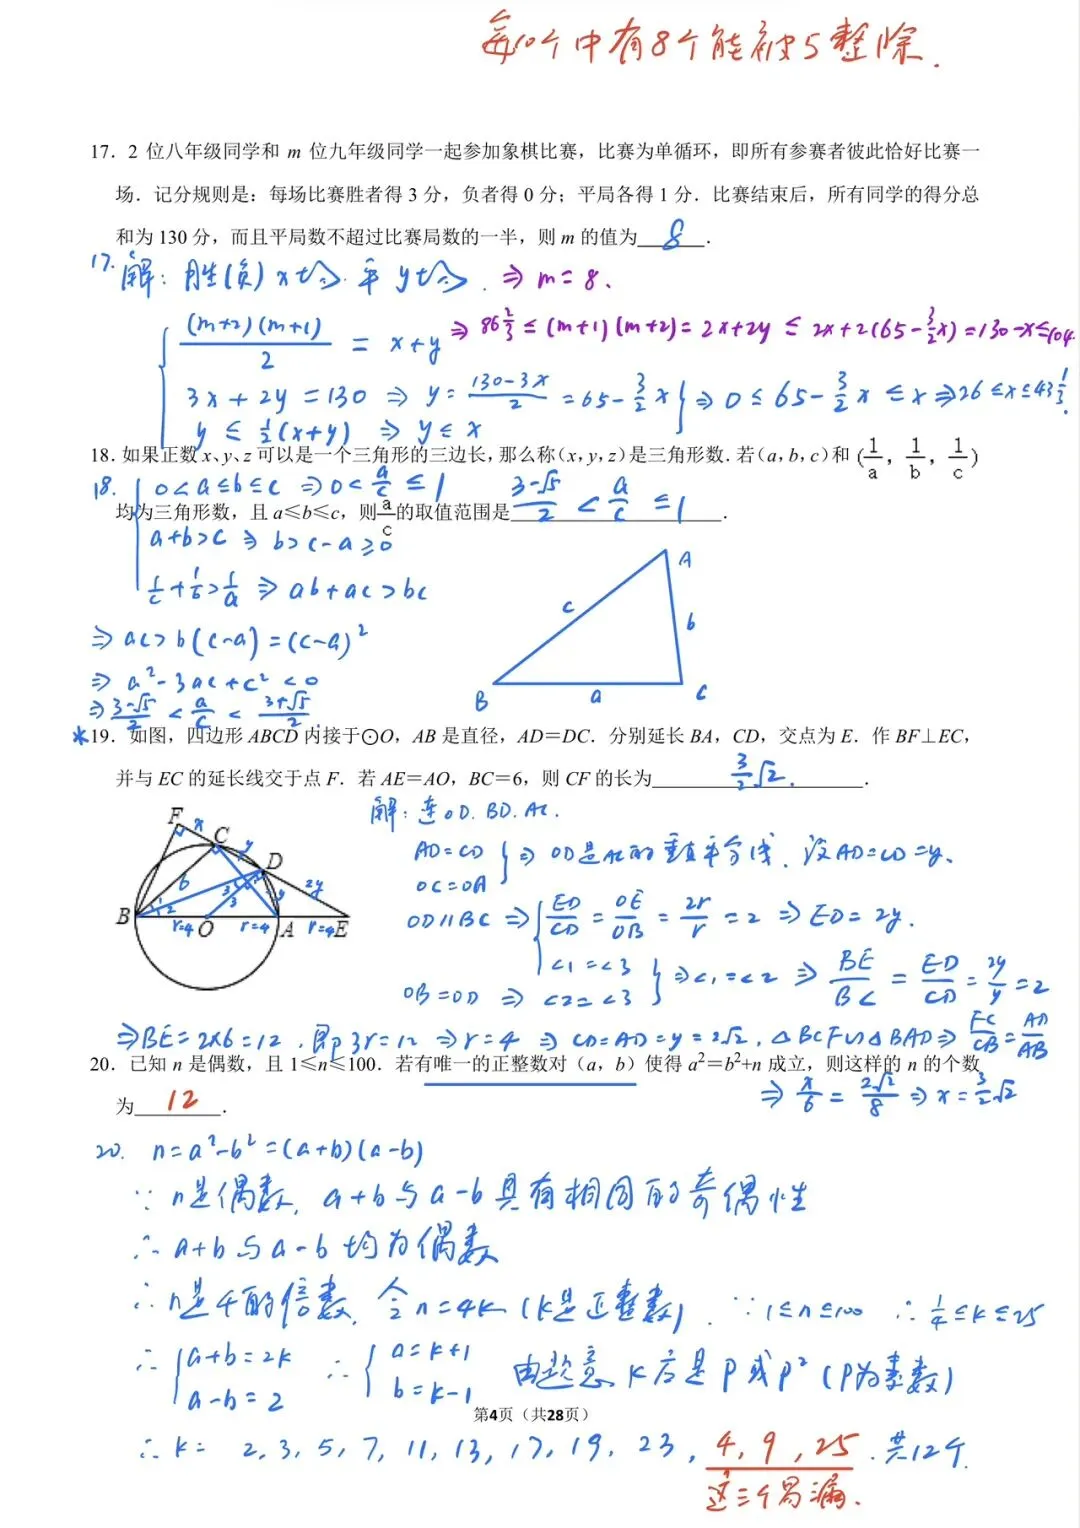 每10个中有8个能被5整除.
17. 2 位八年级同学和 m 位九年级同学一起参加象棋比赛，比赛为单循环，即所有参赛者彼此恰好比赛一
场．记分规则是：每场比赛胜者得 3 分，负者得 0 分；平局各得 1 分．比赛结束后，所有同学的得分总
和为 130 分，而且平局数不超过比赛局数的一半，则 m 的值为 8 ．
17. 解：胜(负) x 场. 平 y 场. ⇒ m = 8.
(m+2)(m+1)/2 = x+y ⇒ 86 2/3 ≤ (m+1)(m+2) = 2x+2y ≤ 2x+2(65-3/2x) = 130-x ≤ 104.
3x+2y=130 ⇒ y = (130-3x)/2 = 65 - 3/2 x } ⇒ 0 ≤ 65 - 3/2 x ≤ x ⇒ 26 ≤ x ≤ 43 1/3.
y ≤ 1/2(x+y) ⇒ y ≤ x
18. 如果正数 x、y、z 可以是一个三角形的三边长，那么称（x，y，z）是三角形数．若（a，b，c）和 (1/a，1/b，1/c)
18. 0<a≤b≤c ⇒ 0< a/c ≤ 1
均为三角形数，且 a≤b≤c，则 a/c 的取值范围是 (3-√5)/2 < a/c ≤ 1 ．
a+b>c ⇒ b>c-a≥0
1/c + 1/b > 1/a ⇒ ab+ac>bc
⇒ ac> b(c-a) = (c-a)²
⇒ a²-3ac+c² <0
⇒ (3-√5)/2 < a/c < (3+√5)/2.
A
c
b
B
a
C
*19. 如图，四边形 ABCD 内接于⊙O，AB 是直径，AD＝DC．分别延长 BA，CD，交点为 E．作 BF⊥EC，
并与 EC 的延长线交于点 F．若 AE＝AO，BC＝6，则 CF 的长为 3/2 √2. ．
解：连OD. BD. AC.
AD=CD
OC=OA } ⇒ OD是AC的垂直平分线. 设AD=CD=y.
OD∥BC ⇒ { ED/CD = OE/OB = 2r/r = 2 ⇒ ED=2y.
∠1=∠3
OB=OD ⇒ ∠2=∠3 } ⇒ ∠1=∠2 ⇒ BE/BC = ED/CD = 2y/y = 2
F x C y D
6 3 3 y 2y
B 1 2 r=4 O r=4 A r=4 E
⇒ BE=2×6=12. 即 3r=12 ⇒ r=4 ⇒ CD=AD=y=2√2. △BCF∽△BAD ⇒ FC/CB = AD/AB
20. 已知 n 是偶数，且 1≤n≤100．若有唯一的正整数对（a，b）使得 a²＝b²+n 成立，则这样的 n 的个数
为 12 ．
⇒ x/6 = 2√2/8 ⇒ x = 3/2 √2
20. n=a²-b²=(a+b)(a-b)
∵ n是偶数, a+b与a-b具有相同的奇偶性
∴ a+b与a-b均为偶数
∴ n是4的倍数, 令n=4k (k是正整数). ∵ 1≤n≤100 ∴ 1/4≤k≤25
∴ { a+b=2k a-b=2 ∴ { a=k+1 b=k-1 由题意 k应是 P 或 P² (P为素数)
第4页（共28页）
∴ k= 2, 3, 5, 7, 11, 13, 17, 19, 23, 4, 9, 25. 共12个.
这三个易漏.